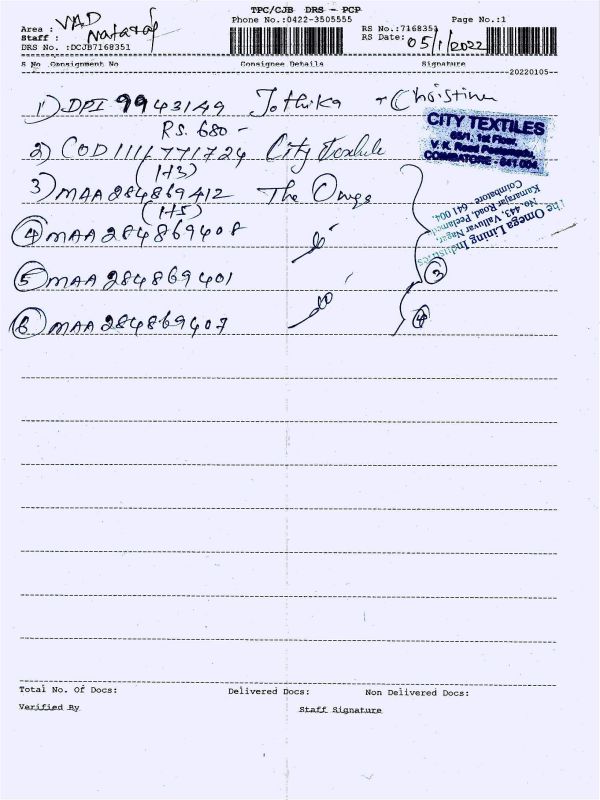 TPC/CJB DRS - PCP
Area : VAD
Phone No.:0422-3505555
Page No.:1
Staff : Nataraj
RS No.:7168351
DRS No. :DCJB7168351
RS Date: 05/1/2022
S No Consignment No Consignee Details Signature
20220105
1) DPI 9943149 Jothika + Christina
RS. 680-
2) COD 1111771724 City Textile
(1+3)
3) MAA 284869412 The Omega
(1+5)
4 MAA 284869408
5 MAA 284869401
3
6 MAA 284869407
4
CITY TEXTILES
1st Floor,
V. K. Road
COIMBATORE - 641 004.
The Omega Lining Industries
No. 443, Valluvar Nagar,
Kamarajar Road, Peelamedu,
Coimbatore - 641 004.
Total No. Of Docs: Delivered Docs: Non Delivered Docs:
Verified By Staff Signature